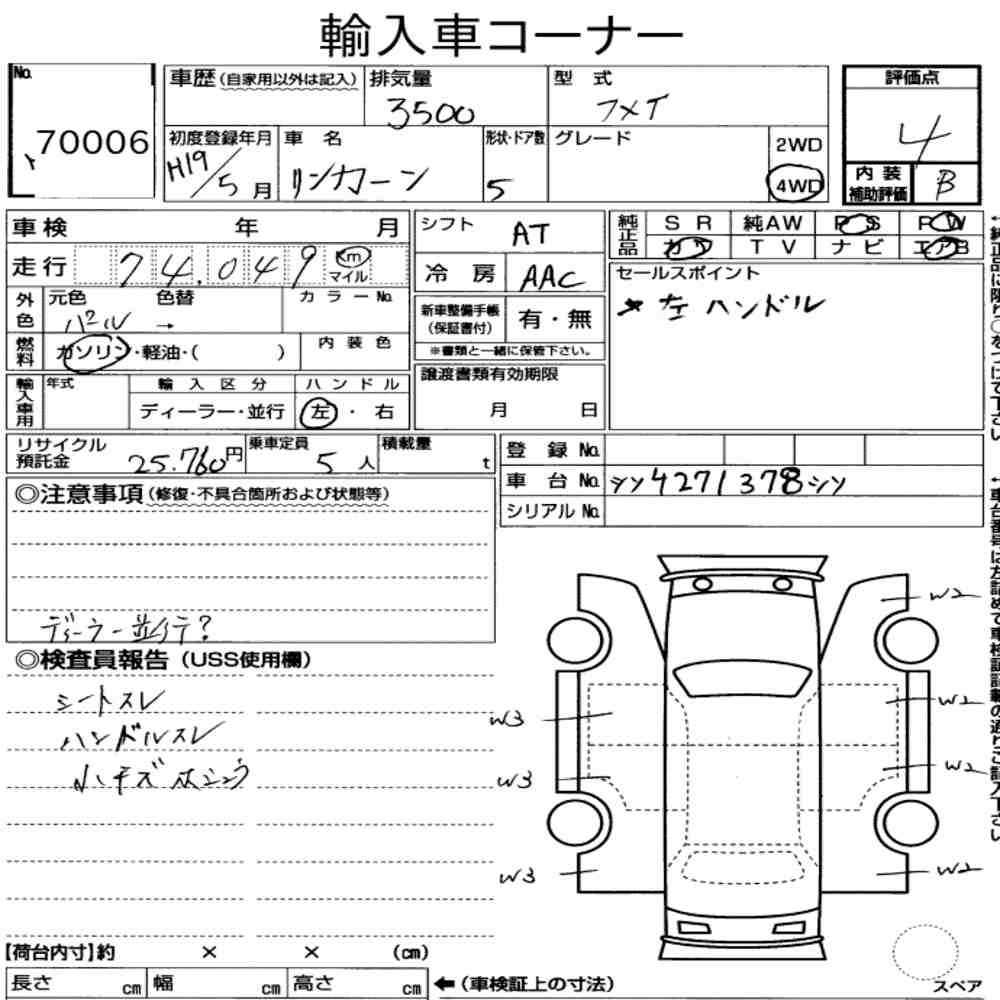 輸入車コーナー
No.
70006
車歴(自家用以外は記入)
排気量
3500
型 式
フメイ
評価点
4
初度登録年月
H19/5月
車 名
リンカーン
形状・ドア数
5
グレード
2WD
4WD
内 装
補助評価
B
車検 年 月
シフト
AT
純正品
S R
純AW
P S
P W
カワ
T V
ナビ
エアB
走行
74,049
Km
マイル
冷 房
AAC
セールスポイント
★左ハンドル
外色
元色
パール
色替
→
カラーNo.
新車整備手帳
(保証書付)
有・無
※書類と一緒に保管下さい。
燃料
ガソリン・軽油・( )
内 装 色
譲渡書類有効期限
月 日
輸入車用
年式
輸 入 区 分
ディーラー・並行
ハ ン ド ル
左・右
リサイクル
預託金
25.760円
乗車定員
5人
積載量
t
登 録 No.
車 台 No.
シン4271378シン
シリアル No.
◎注意事項(修復・不具合箇所および状態等)
ディーラー並行?
◎検査員報告(USS使用欄)
シートスレ
ハンドルスレ
小キズ ホシュウ
W2
W3
W2
W3
W2
W3
W2
【荷台内寸】約 × × (cm)
長さ cm
幅 cm
高さ cm
←(車検証上の寸法)
スペア
←純正品に限り○をつけて下さい
←車台番号は左詰めで車検証記載の通りご記入下さい